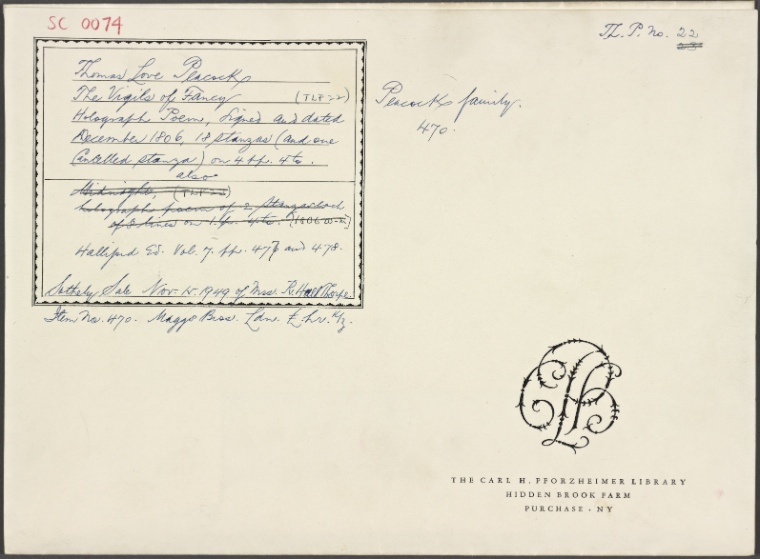 SC 0074
T.L.P. No. 22
Thomas Love Peacock
The Vigils of Fancy (TLP 22)
Holograph Poem, Signed and dated
December 1806, 18 stanzas (and one
Cancelled stanza) on 4 pp. 4to.
also
Midnight, (TLP 22)
holograph poem of 2 stanzas each
of 8 lines on 1 p. 4to.
Halliford Ed. Vol. 7. pp. 477 and 478.
Sotheby Sale Nov. 1949 of Mrs. R. Hall Thorpe.
Item No. 470. Maggs Bros.
Peacock family.
470.
THE CARL H. PFORZHEIMER LIBRARY
HIDDEN BROOK FARM
PURCHASE · NY